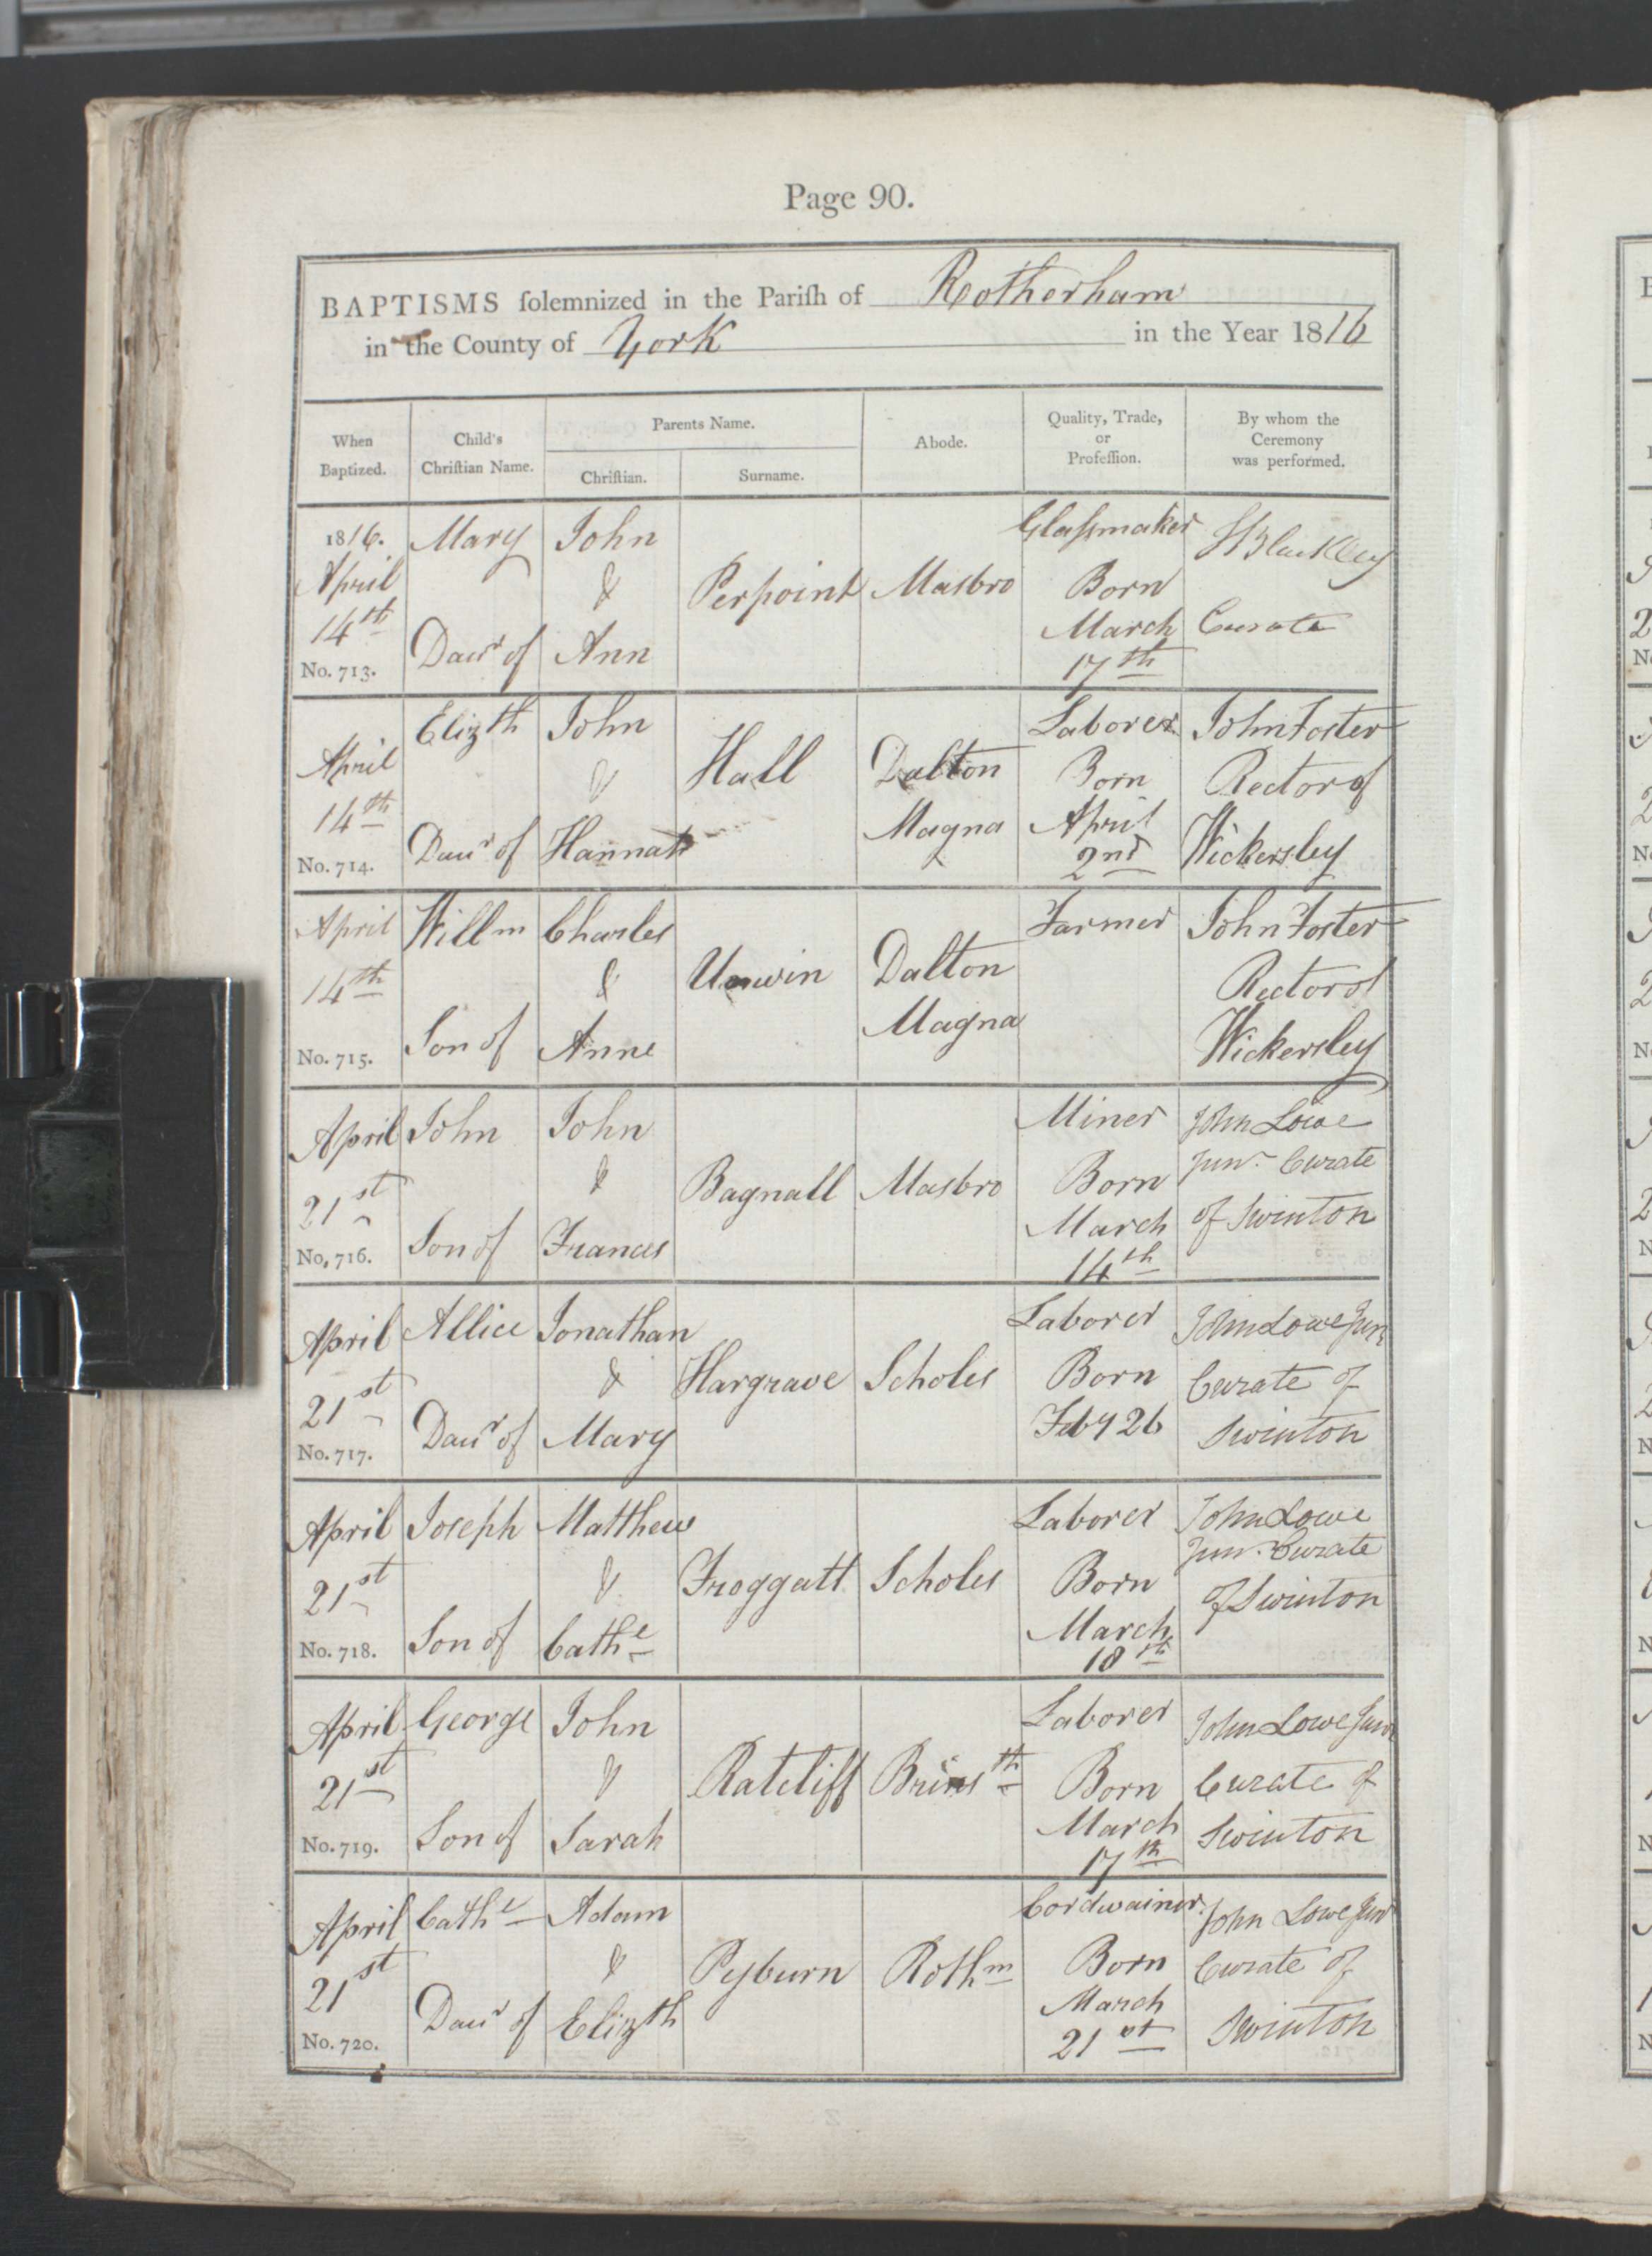 Page 90.
BAPTISMS ſolemnized in the Pariſh of Rotherham
in the County of York in the Year 1816
When Baptized. Child's Chriſtian Name. Parents Name. Chriſtian. Surname. Abode. Quality, Trade, or Profeſſion. By whom the Ceremony was performed.
1816. Mary John Glaſsmaker
April & Perpoint Masbro Born
14th Daur of Ann March Curate
No. 713. 17th
Elizth John Laborer John Foster
April & Hall Dalton Born Rector of
14th Daur of Hannah Magna April Wickersley
No. 714. 2nd
April Willm Charles Farmer John Foster
14th & Unwin Dalton Rector of
No. 715. Son of Anne Magna Wickersley
April John John Miner John Lowe
& Bagnall Masbro Born Junr. Curate
21st Son of Frances March of Swinton
No. 716. 14th
April Allice Jonathan Laborer John Lowe Junr
& Hargrave Scholes Born Curate of
21st Daur of Mary Feby 26 Swinton
No. 717.
April Joseph Matthew Laborer John Lowe
21st & Froggatt Scholes Born Junr. Curate
No. 718. Son of Cathe March of Swinton
18th
April George John Laborer John Lowe Junr
21st & Ratcliff Brinsth Born Curate of
No. 719. Son of Sarah March Swinton
17th
April Cathe Adam Cordwainer John Lowe Junr
21st & Pyburn Rothm Born Curate of
Daur of Elizth March Swinton
No. 720. 21st